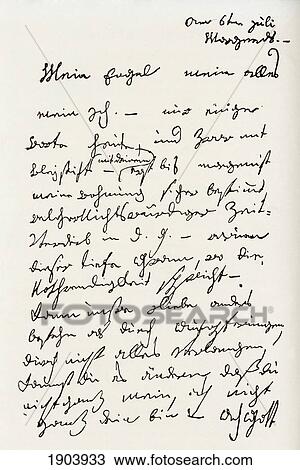 am 6ten Juli
Morgends. —
Mein Engel mein alles
mein Ich. — nur einige
Worte heute, und zwar mit
Bleystift — (mit deinem) erst bis morgen ist
meine Wohnung sicher bestimmt,
welcher nichtswürdiger Zeit-
Verderb in d. g. — warum
dieser tiefe Gram, wo die
Nothwendigkeit spricht —
Kann unsre Liebe anders
bestehn als durch Aufopferungen,
durch nicht alles verlangen,
kannst du es ändern, daß du
nicht ganz mein, ich nicht
ganz dein bin — Ach Gott
FOTOSEARCH
1903933 www.fotosearch.com